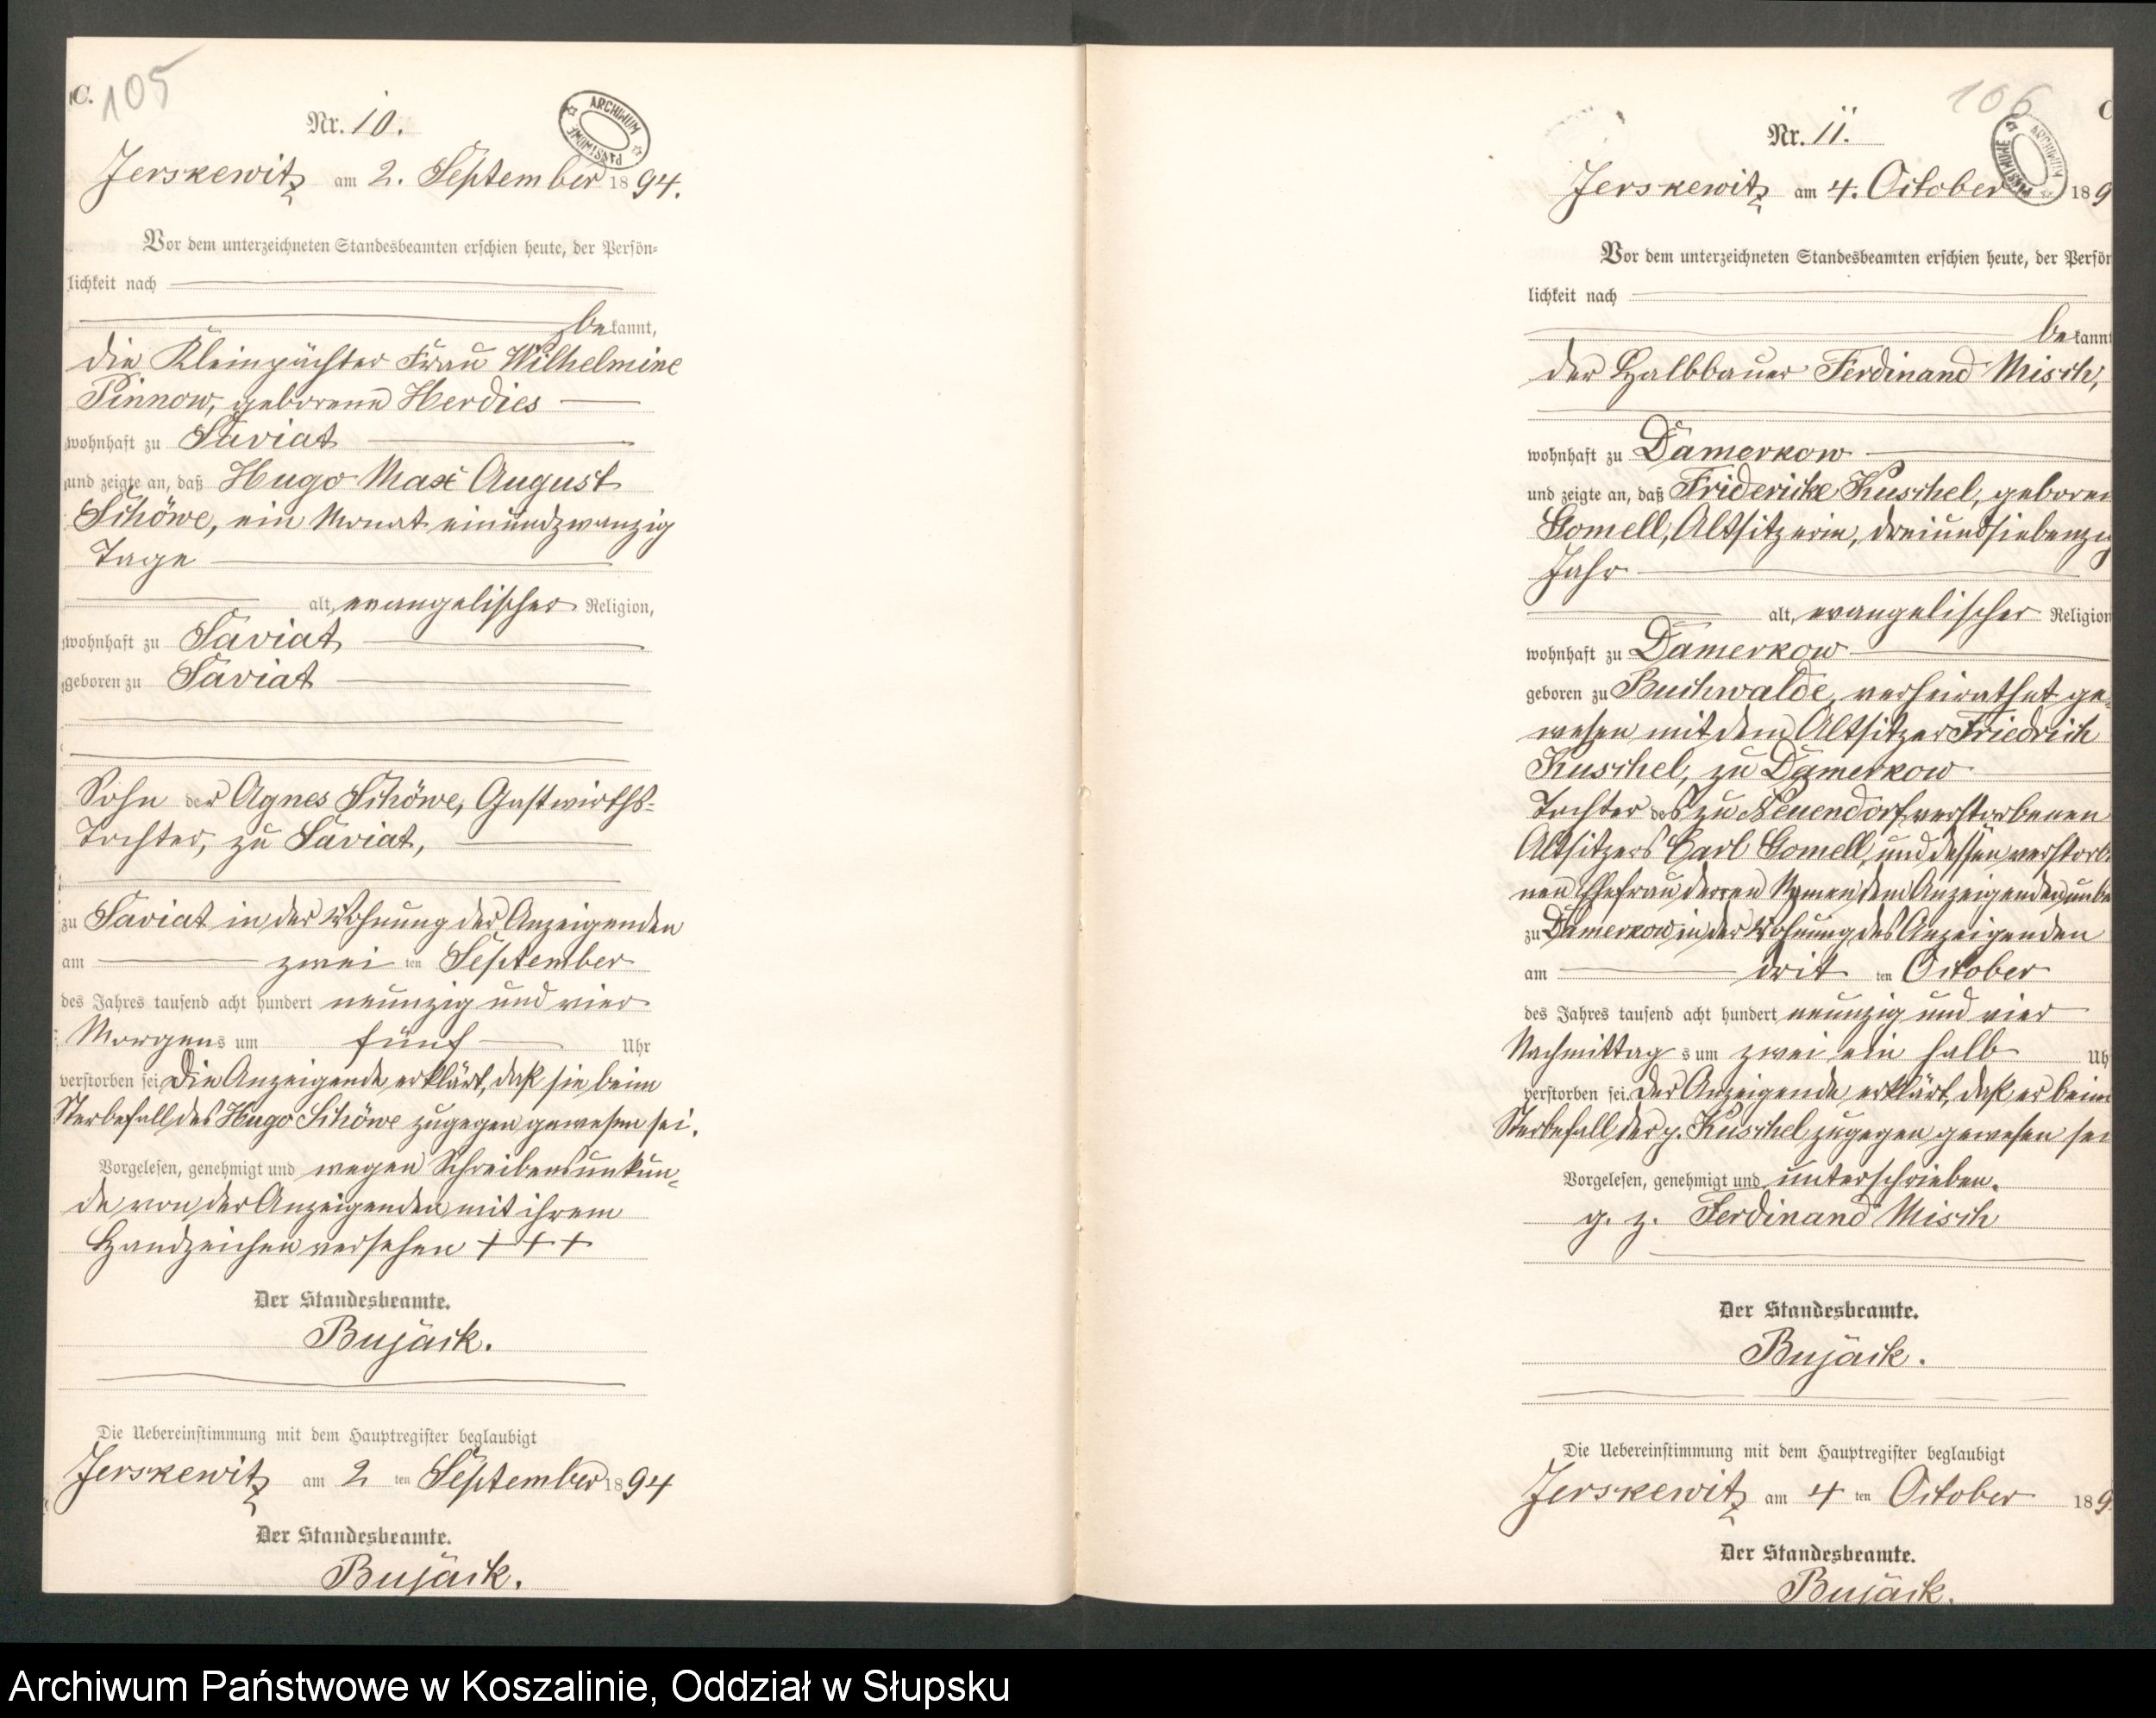 C.
105
Nr. 10.
ARCHIWUM PAŃSTWOWE
Jerskewitz am 2. September 1894.
Vor dem unterzeichneten Standesbeamten erschien heute, der Persön-
lichkeit nach
bekannt,
die Kleinpächter Frau Wilhelmine
Pinnow, geborene Herdies
wohnhaft zu Saviat
und zeigte an, daß Hugo Max August
Schöwe, ein Monat einundzwanzig
Tage
alt, evangelischer Religion,
wohnhaft zu Saviat
geboren zu Saviat
Sohn der Agnes Schöwe, Gastwirths-
Tochter, zu Saviat,
zu Saviat in der Wohnung der Anzeigenden
am zwei ten September
des Jahres tausend acht hundert neunzig und vier
Morgens um fünf Uhr
verstorben sei. Die Anzeigende erklärt, daß sie beim
Sterbefall des Hugo Schöwe zugegen gewesen sei.
Vorgelesen, genehmigt und wegen Schreibensunkun-
de von der Anzeigenden mit ihrem
Handzeichen versehen + + +
Der Standesbeamte.
Bujäck.
Die Uebereinstimmung mit dem Hauptregister beglaubigt
Jerskewitz am 2 ten September 1894
Der Standesbeamte.
Bujäck.
106
C
Nr. 11.
ARCHIWUM PAŃSTWOWE
Jerskewitz am 4. October 189
Vor dem unterzeichneten Standesbeamten erschien heute, der Persön
lichkeit nach
bekannt
der Halbbauer Ferdinand Misch,
wohnhaft zu Damerkow
und zeigte an, daß Friderike Kuschel, geboren
Gomell, Altsitzerin, dreiundsiebenzig
Jahr
alt, evangelischer Religion
wohnhaft zu Damerkow
geboren zu Buchwalde, verheirathet ge-
wesen mit dem Altsitzer Friedrich
Kuschel, zu Damerkow
Tochter des zu Neuendorf verstorbenen
Altsitzers Carl Gomell, und dessen verstorbe
nen Ehefrau deren Namen dem Anzeigenden unbe
zu Damerkow in der Wohnung des Anzeigenden
am drit ten October
des Jahres tausend acht hundert neunzig und vier
Nachmittag s um zwei ein halb Uh
verstorben sei. Der Anzeigende erklärt, daß er beim
Sterbefall der p. Kuschel zugegen gewesen sei
Vorgelesen, genehmigt und unterschrieben.
g. z. Ferdinand Misch
Der Standesbeamte.
Bujäck.
Die Uebereinstimmung mit dem Hauptregister beglaubigt
Jerskewitz am 4 ten October 189
Der Standesbeamte.
Bujäck.
Archiwum Państwowe w Koszalinie, Oddział w Słupsku